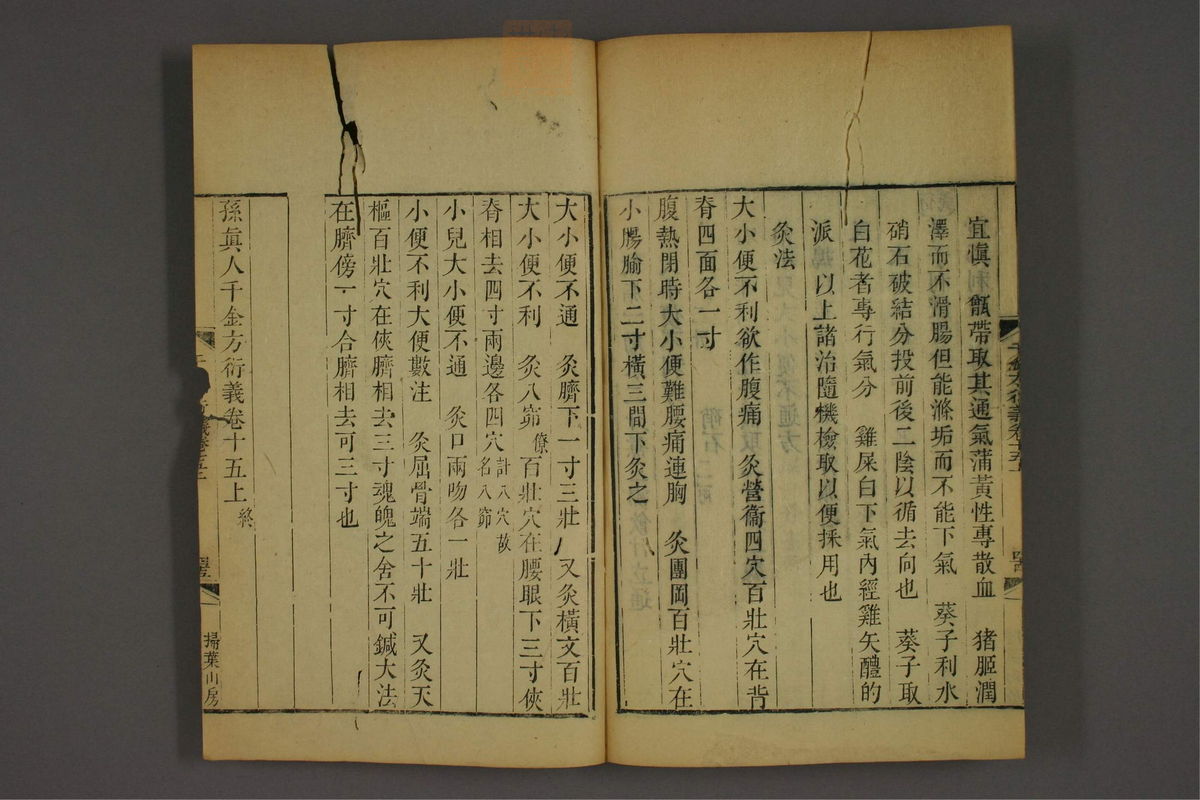 宜慎利 甑帶取其通氣蒲黃性專散血 猪胆潤
澤而不滑腸但能滌垢而不能下氣 葵子利水
硝石破結分投前後二陰以循去向也 葵子取
白花者專行氣分 雞屎白下氣內經雞矢醴的
派 以上諸治隨機檢取以便採用也
灸法
大小便不利欲作腹痛 灸營衞四穴百壯穴在背
脊四面各一寸
腹熱閉時大小便難腰痛連胸 灸團岡百壯穴在
小腸腧下二寸橫三間下灸之
大小便不通 灸臍下一寸三壯 又灸橫文百壯
大小便不利 灸八窌 僚 百壯穴在腰眼下三寸俠
脊相去四寸兩邊各四穴 計八穴故名八窌
小兒大小便不通 灸口兩吻各一壯
小便不利大便數注 灸屈骨端五十壯 又灸天
樞百壯穴在俠臍相去三寸魂魄之舍不可鍼大法
在臍傍一寸合臍相去可三寸也
孫眞人千金方衍義卷十五上 終
掃葉山房